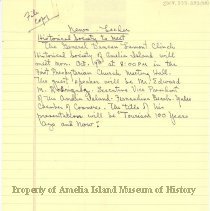 File
Copy
News Leader
Historical Society to Meet
The General Duncan Lamont Clinch
Historical Society of Amelia Island will
meet Mon. Oct. 19th at 8:00 P.M. in the
First Presbyterian Church Meeting Hall.
The guest speaker will be Mr. Edward
M. Executive Vice President
of the Amelia Island - Fernandina Beach - Yulee
Chamber of Commerce. The title of his
presentation will be "Tourism 100 Years
Ago and Now."
Property of Amelia Island Museum of History